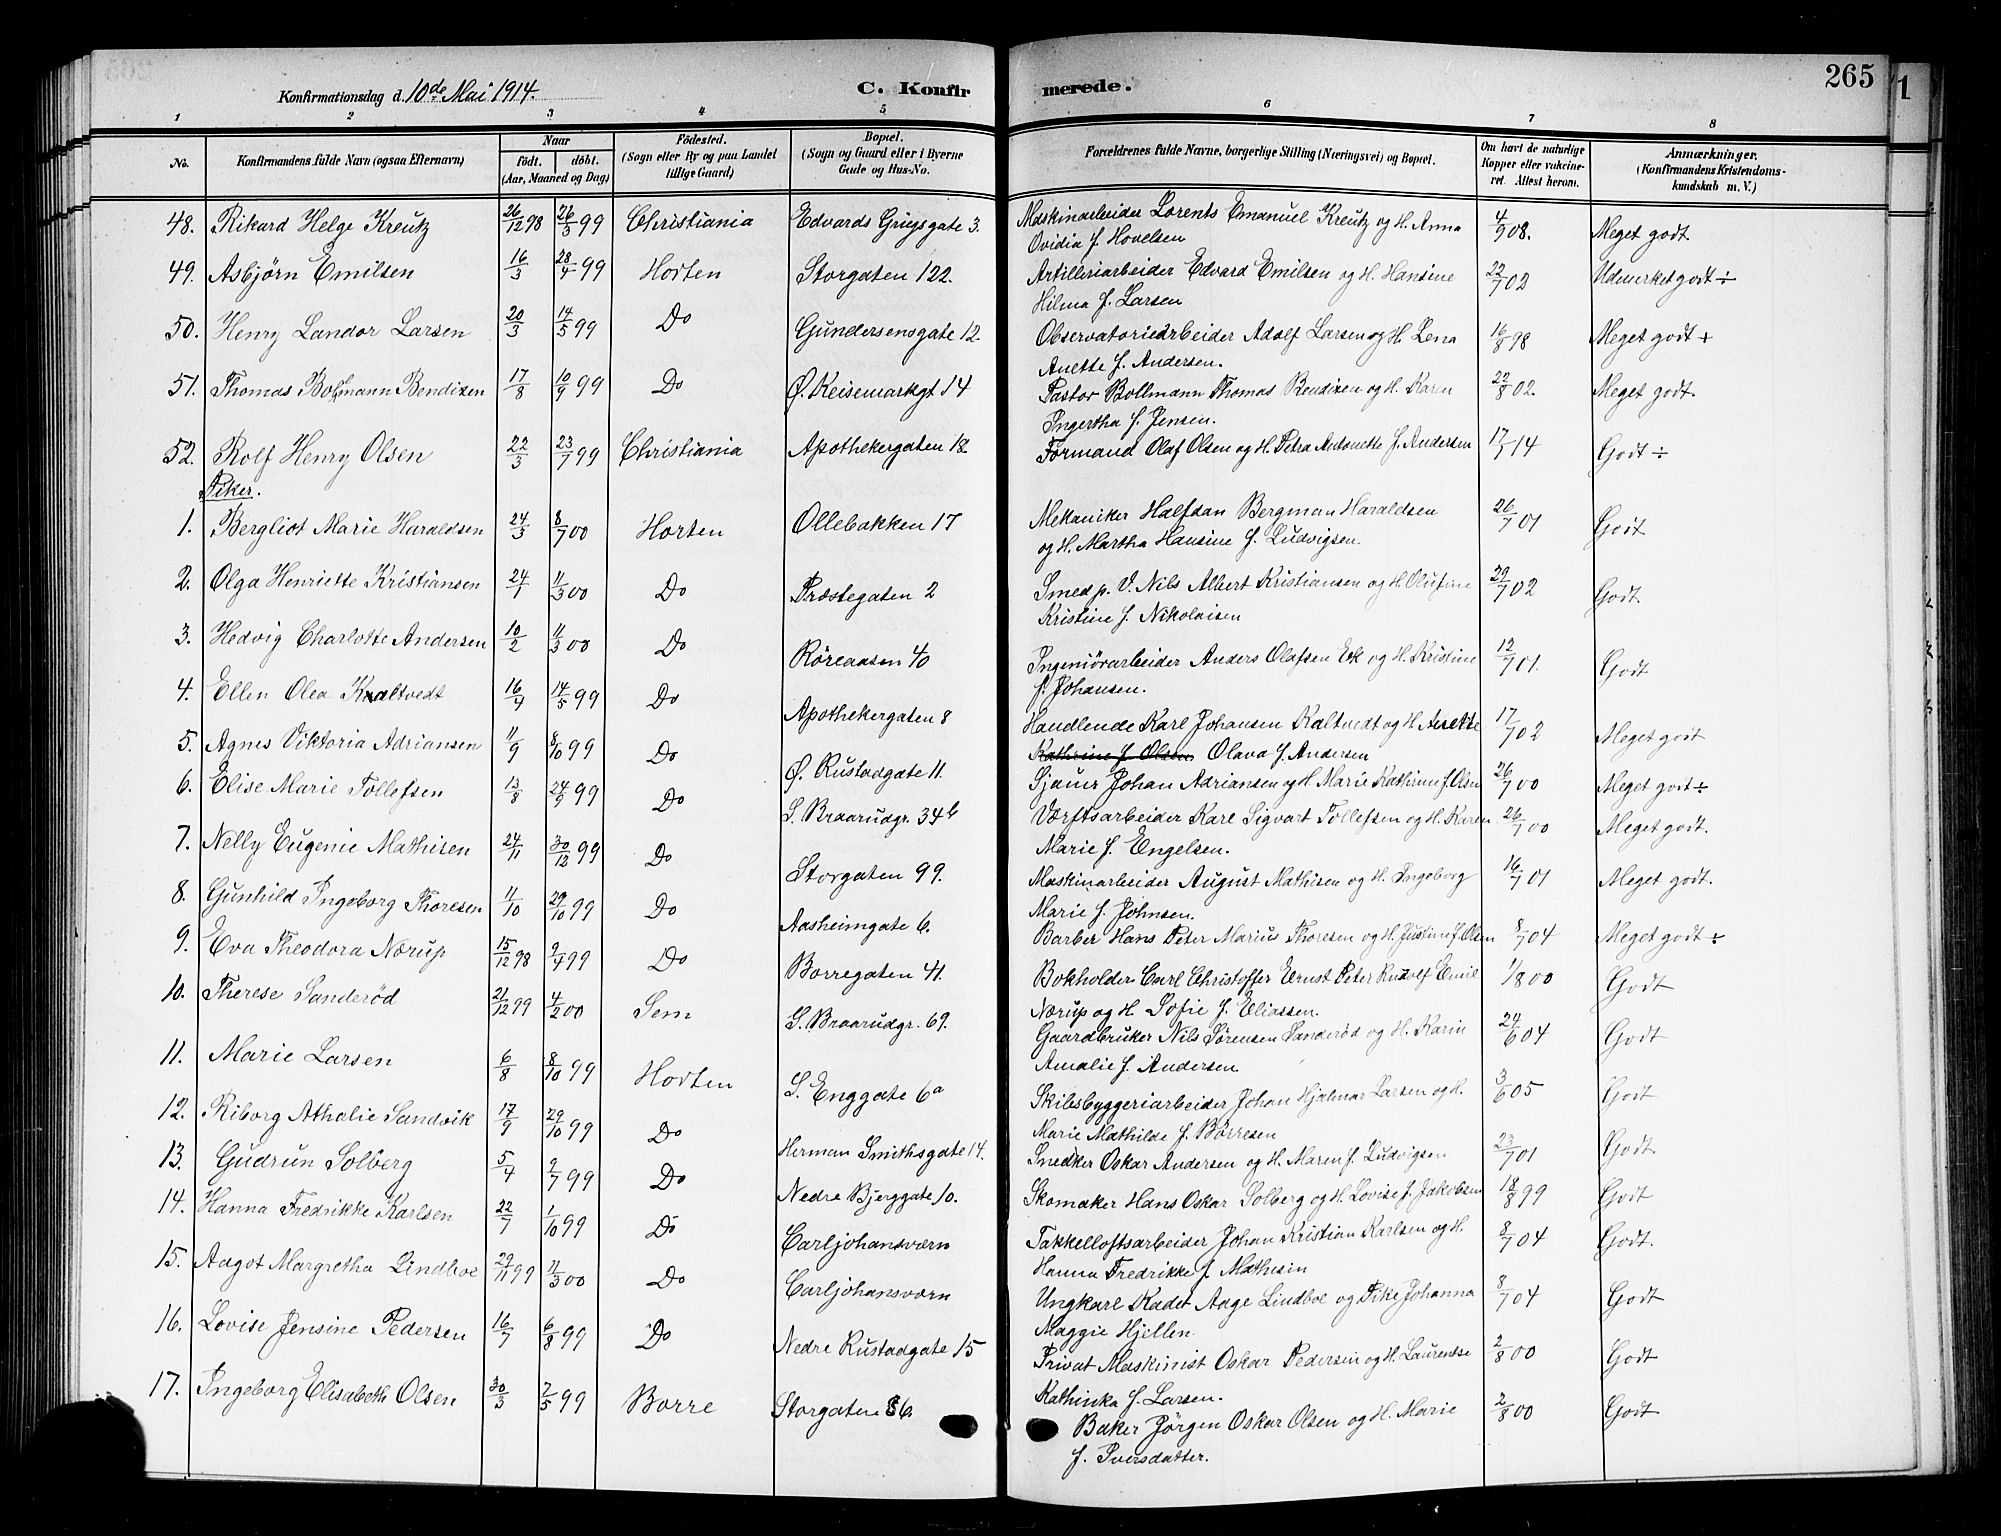 265
1
Konfirmationsdag d. 10de Mai 1914.
C. Konfir
merede.
1 2 3 4 5 6 7 8
No. Konfirmandens fulde Navn (ogsaa Efternavn) Naar født. døbt. (Aar, Maaned og Dag) Fødested. (Sogn eller By og paa Landet tillige Gaard) Bopæl. (Sogn og Gaard eller i Byerne Gade og Hus-No.
Forældrenes fulde Navne, borgerlige Stilling (Næringsvei) og Bopæl. Om havt de naturlige Kopper eller vakcineret. Attest herom. Anmærkninger. (Konfirmandens Kristendomskundskab m. V.)
48. Rikard Helge Kreutz 26/12 98 26/3 99 Christiania Edvards Griegsgate 3. Maskinarbeider Lorents Emanuel Kreutz og H. Anna 4/9 08. Meget godt.
Ovidia f. Hovelsen
49. Asbjørn Emilsen 16/3 28/4 99 Horten Storgaten 122. Artilleriarbeider Edvard Emilsen og H. Hansine 22/7 02 Udmerket godt ÷
Hilma f. Larsen
50. Henry Landor Larsen 20/3 14/5 99 Do Gundersensgate 12. Observatoriearbeider Adolf Larsen og H. Lena 16/8 98 Meget godt +
Anette f. Andersen.
51. Thomas Bollmann Bendixen 17/8 10/9 99 Do Ø. Keisemarkgt 14 Pastor Bollmann Thomas Bendixen og H. Karen 22/8 02. Meget godt.
Ingertha f. Jensen.
52. Rolf Henry Olsen 22/3 23/7 99 Christiania Apothekergaten 18. Formand Olaf Olsen og H. Petra Antonette f. Andersen 17/5 14 Godt ÷
Piker.
1. Bergliot Marie Haraldsen 24/3 8/7 00 Horten Ollebakken 17 Mekaniker Halfdan Bergman Haraldsen 26/7 01 Godt
og H. Martha Hansine f. Ludvigsen.
2. Olga Henriette Kristiansen 24/1 11/3 00 Do Præstegaten 2 Smed p. V. Nils Albert Kristiansen og H. Olufine 29/7 02 Godt.
Kristine f. Nikolaisen
3. Hedvig Charlotte Andersen 10/2 11/3 00 Do Røreaasen 40 Ingeniørarbeider Anders Olafsen Ek og H. Kristine 12/7 01. Godt
f. Johansen.
4. Ellen Olea Kaltvedt 16/4 14/5 99 Do Apothekergaten 8 Handlende Karl Johansen Kaltvedt og H. Anette 17/7 02 Meget godt
Kathrine f. Olsen Olava f. Andersen
5. Agnes Viktoria Adriansen 11/9 8/10 99 Do Ø. Rustadgate 11. Sjauer Johan Adriansen og H. Marie Kathrine f. Olsen 26/7 00 Meget godt ÷
6. Elise Marie Tollefsen 13/8 24/9 99 Do S. Braarudgr. 34b Værftsarbeider Karl Sigvart Tollefsen og H. Karen 26/7 00 Meget godt.
Marie f. Engelsen.
7. Nelly Eugenie Mathisen 24/11 30/12 99 Do Storgaten 99. Maskinarbeider August Mathisen og H. Ingeborg 16/7 01 Meget godt.
Marie f. Johnsen.
8. Gunhild Ingeborg Thoresen 1/10 29/10 99 Do Aasheimgate 6. Barber Hans Peter Marius Thoresen og H. Justine f. Olsen 8/7 04 Meget godt ÷
9. Eva Theodora Nærup 15/12 98 2/4 99 Do Borregaten 41. Bokholder Carl Christoffer Ernst Peter Rudolf Emil 1/8 00 Godt
Nærup og H. Sofie f. Eliassen.
10. Therese Sanderød 21/12 99 4/2 00 Sem S. Braarudgr. 69. Gaardbruker Nils Sørensen Sanderød og H. Karin 24/6 04 Godt
Amalie f. Andersen
11. Marie Larsen 6/8 8/10 99 Horten S. Enggate 6a Skibsbyggeriarbeider Johan Hjalmar Larsen og H. 3/6 05 Godt
Marie Mathilde f. Børresen
12. Riborg Athalie Sandvik 17/9 29/10 99 Do Herman Smithsgate 14. Snedker Oskar Andersen og H. Maren f. Ludvigsen 23/7 01 Godt.
13. Gudrun Solberg 5/4 2/7 99 Do Nedre Bjerggate 10. Skomaker Hans Oskar Solberg og H. Lovise f. Jakobsen 18/8 99 Godt
14. Hanna Fredrikke Karlsen 22/7 1/10 99 Do Carljohansværn Takkelloftsarbeider Johan Kristian Karlsen og H. 8/7 04 Godt.
Hanna Fredrikke f. Mathisen
15. Aagot Margretha Lindboe 29/11 99 11/3 00 Do Carljohansværn Ungkarl Kadet Aage Lindboe og Pike Johanna 8/7 04 Godt
Maggie Hjellen.
16. Lovise Jensine Pedersen 16/7 6/8 99 Do Nedre Rustadgate 15 Privat Maskinist Oskar Pedersen og H. Laurentse 2/8 00 Godt
Kathinka f. Larsen.
17. Ingeborg Elisabeth Olsen 30/3 7/5 99 Borre Storgaten 86. Baker Jørgen Oskar Olsen og H. Marie 2/8 00 Godt
f. Iversdatter.